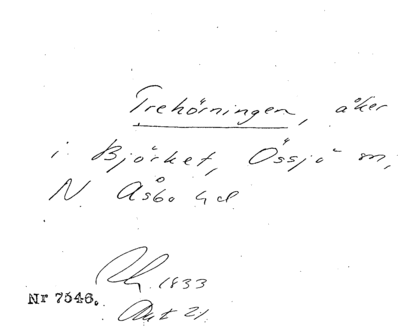 Trehörningen, åker
i Björket, Össjö sn,
N Åsbo hd
1833
Nr 7546.
Akt 21